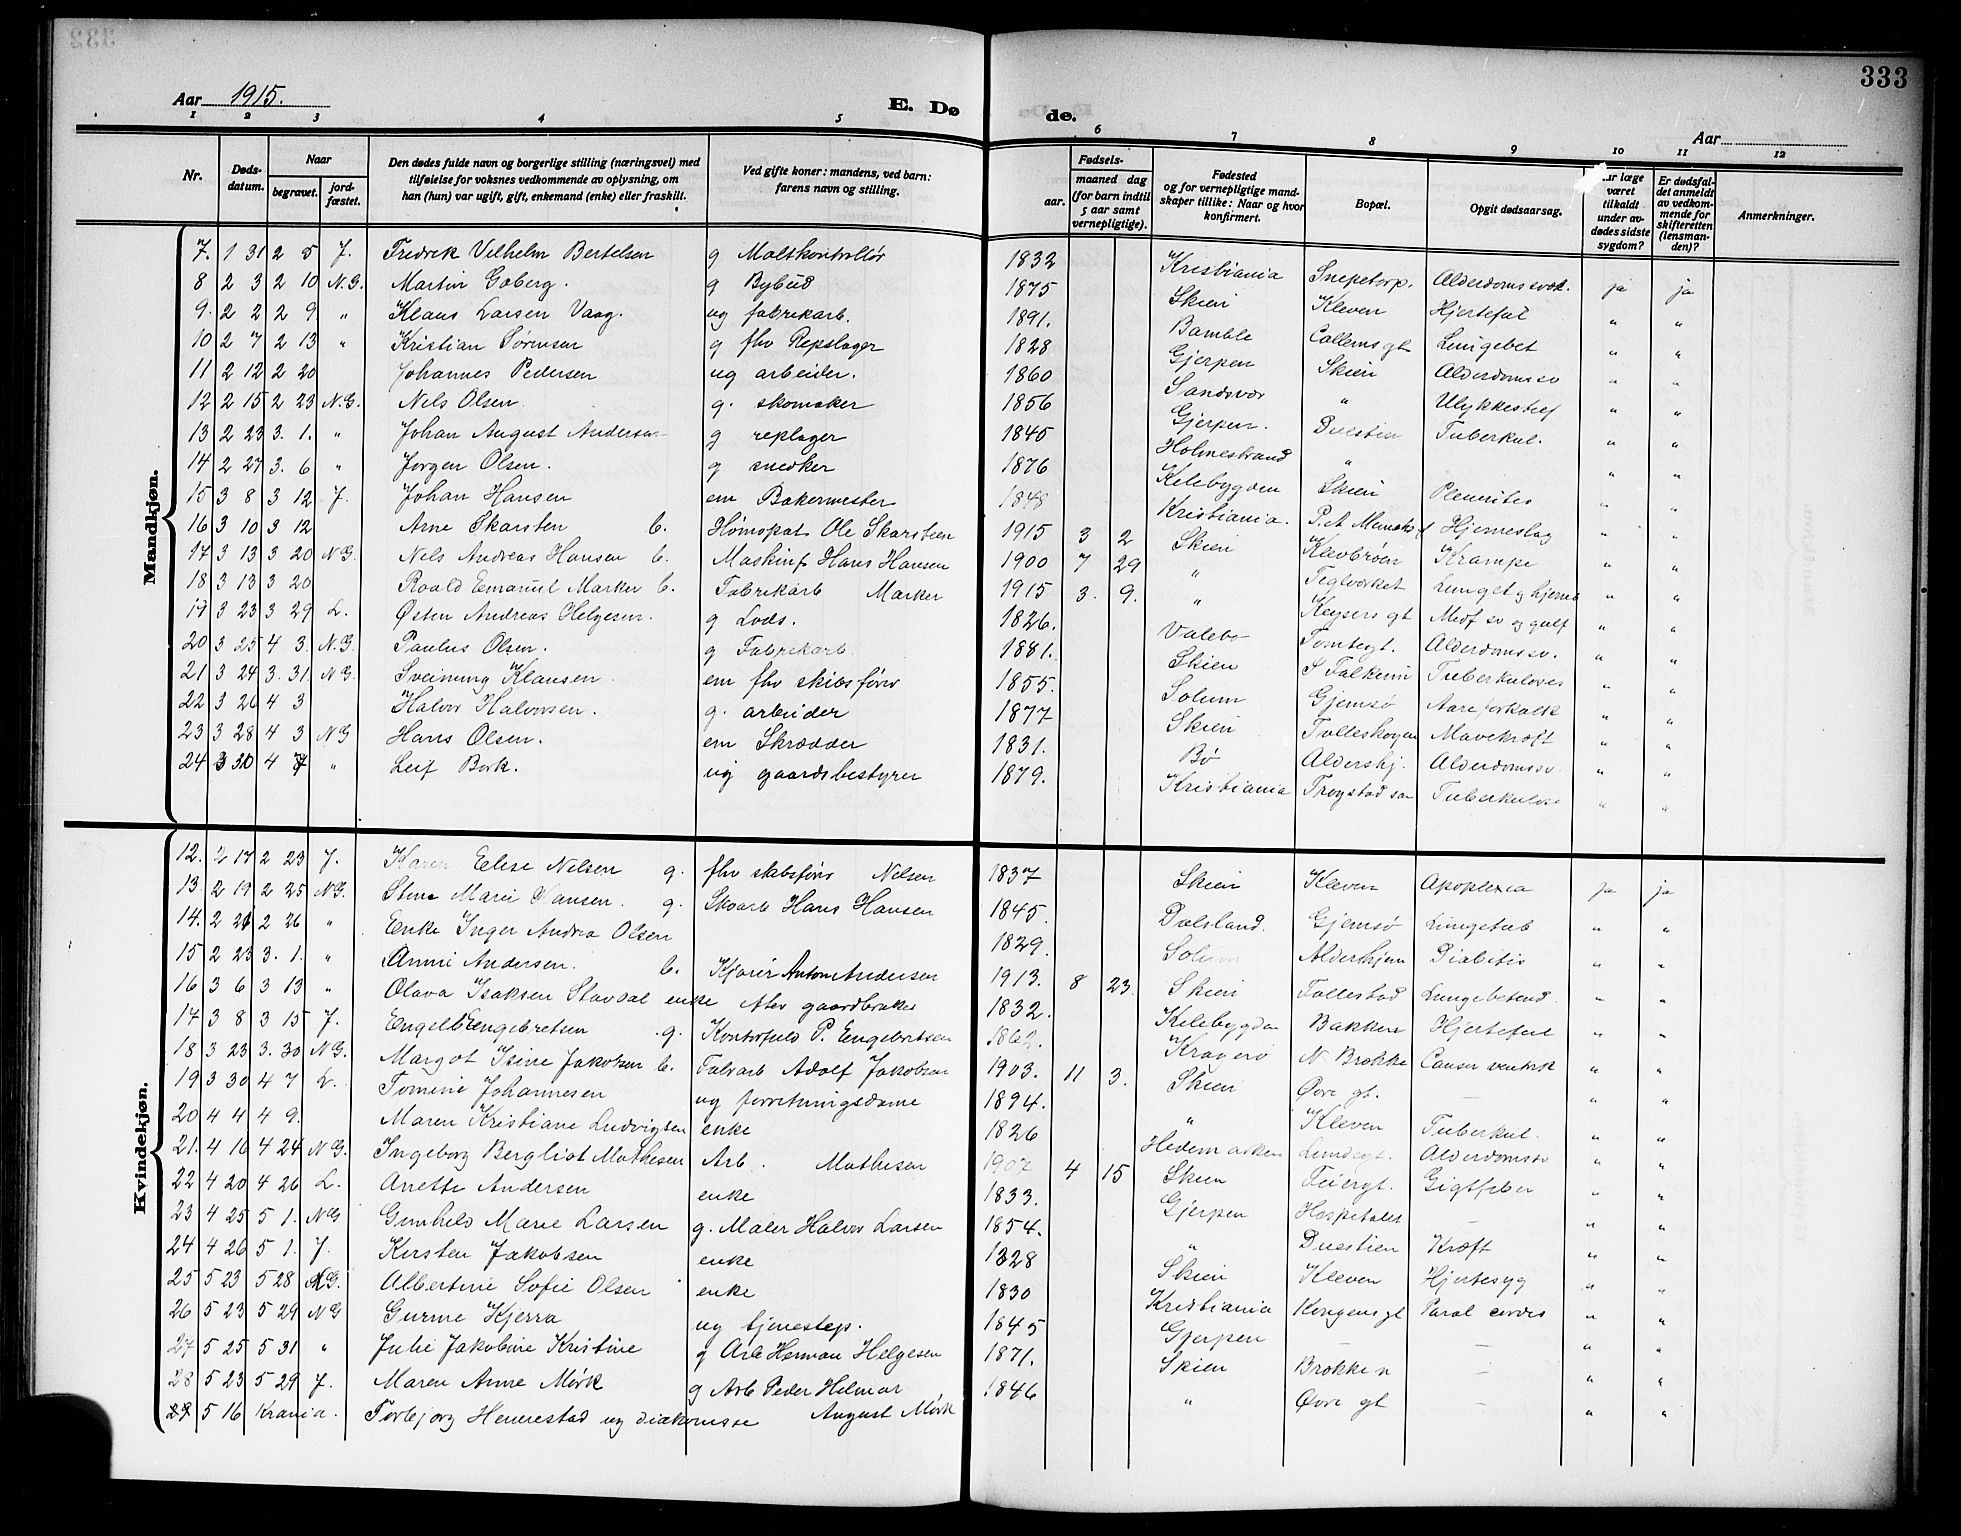 333
Aar 1915.
E. Dø de.
Aar
1 2 3 4 5 6 7 8 9 10 11 12
Nr.
Døds-datum.
Naar
begravet.
jord-fæstet.
Den dødes fulde navn og borgerlige stilling (næringsvei) med
tilføielse for voksnes vedkommende av oplysning, om
han (hun) var ugift, gift, enkemand (enke) eller fraskilt.
Ved gifte koner: mandens, ved barn:
farens navn og stilling.
Fødsels-
aar.
maaned dag
(for barn indtil
5 aar samt
vernepligtige).
Fødested
og for vernepligtige mand-
skaper tillike: Naar og hvor
konfirmert.
Bopæl.
Opgit dødsaarsag.
Har læge
været
tilkaldt
under av-
dødes sidste
sygdom?
Er dødsfal-
det anmeldt
av vedkom-
mende for
skifteretten
(lensman-
den)?
Anmerkninger.
Mandkjøn.
7. 1 31 2 5 J. Fredrik Vilhelm Bertelsen g Maltkontrollør 1832 Kristiania Snipetorp. Alderdomssvæk. ja ja
8 2 3 2 10 N.G. Martin Goberg. g Bybud 1875 Skien Kleven Hjertefeil " "
9. 2 2 2 9 " Klaus Larsen Vaag. ug fabrikarb. 1891. Bamble Callemsgt Lungebet " "
10 2 7 2 13 " Kristian Sørensen g fhv Repslager 1828 Gjerpen Skien Alderdomssv " "
11 2 12 2 20 Johannes Pedersen ug arbeider. 1860 Sandsvær " Ulykkestilf " "
12 2 15 2 23 N.G. Nils Olsen g. skomaker 1856 Gjerpen. Duestien Tuberkul. " "
13 2 23 3. 1. " Johan August Andersen g repslager 1845 Holmestrand " " "
14 2 27 3. 6 " Jørgen Olsen. g snedker 1876 Kilebygden Skien Pleuritis " "
15 3 8 3 12 J. Johan Hansen em Bakermester 1848 Kristiania. Hjerneslag " "
16 3 10 3 12 Arne Skarsten b. Hømopat Ole Skarsteen 1915 3 2 Skien Klevbrøen Krampe " "
17 3 13 3 20 N.G. Nils Andreas Hansen b. Maskinf Hans Hansen 1900 7 29 " Teglverket Lunget og hjerneb " "
18 3 13 3 20 Roald Emanuel Marker b. Fabrikarb Marker 1915 3. 9. " Keysersgt Medf sv og gulf " "
19 3 23 3 29 L. Østen Andreas Helgesen. g Lods. 1826. Valebø Tomtegt. Alderdomssv. " "
20 3 25 4 3. N.G. Paulus Olsen. g Fabrikarb 1881. Skien S Falkum Tuberkuloses " "
21 3 24 3. 31. N.G. Sveinung Klausen em fhv skibsfører 1855. Solum Gjemsø Aareforkalk " "
22 3 26 4 3 Halvor Halvorsen. g. arbeider 1877 Skien Folleskogen Mavekræft " "
23 3 28 4 3 N G Hans Olsen. em Skrædder 1831. Bø Aldershj. Alderdomssv. " "
24 3 30 4 7 " Leif Bork. ug gaardsbestyrer 1879. Kristiania Trøgstad san Tuberkulose " "
Kvindekjøn.
12. 2 17 2 23 J. Karen Elise Nilsen g. fhv skibsfører Nilsen 1837 Skien Kleven Apoplexia ja ja
13. 2 19 2 25 N.G. Stine Marie Hansen. g. Skoarb Hans Hansen 1845 Dalsland. Gjemsø Lungetub " "
14. 2 21 2 26 " Enke Inger Andrea Olsen 1829. Solum Alderhjem Diabitis " "
15 2 23 3. 1. " Anni Andersen. b. Kjører Anton Andersen 1913. 8 23. Skien Follestad Lungebetend. " "
16 3 6 3 13 " Olava Isaksen Stavdal enke efter gaardbruker 1832. Kilebygden Bakken Hjertefeil " "
17 3 8 3 15 J. Engelb Engebretsen g. Kontorfuld P. Engebretsen 1862. Kragerø N. Brekke Cancer ventrik " "
18 3 23 3. 30 N.G. Margot Isine Jakobsen b. Fabrarb Adolf Jakobsen 1903. 11 3. Skien Øvre gt. — " "
19 3 30 4 7 L. Tomine Johannesen ug forretningsdame 1894. " Kleven Tuberkul. " "
20 4 4 4 9. Maren Kristiane Ludvigsen enke 1826 Hedemarken Lundegt. Alderdomssv " "
21. 4 16 4 24 N G. Ingeborg Bergliot Mathesen Arb. Mathesen 1907 4 15 Skien Feiergt. Gigtfeber " "
22 4 20 4 26 L. Anette Andersen enke 1833. Gjerpen Hospitalet — " "
23 4 25 5 1. N G Gunhild Marie Larsen g. Maler Halvor Larsen 1854. " Duestien Kræft " "
24 4 26 5 1. J. Kirsten Jakobsen enke 1828 Skien Kleven Hjertesyg " "
25 5 23 5 28 N.G. Albertine Sofie Olsen enke 1830 Kristiania Kongensgt Paral cordis " "
26 5 23 5 29 N G Gurine Kjerra ug tjenestep. 1845 Gjerpen — — " "
27 5 25 5 31 " Julie Jakobine Kristine g Arb Herman Helgesen 1871. Skien Brekke n — " "
28 5 23 5 29 J. Maren Anne Mørk g Arb Peder Helmar August Mørk 1846 " Øvre gt — " "
29 5 16 Krania. Torbjørg Hennestad ug diakonisse